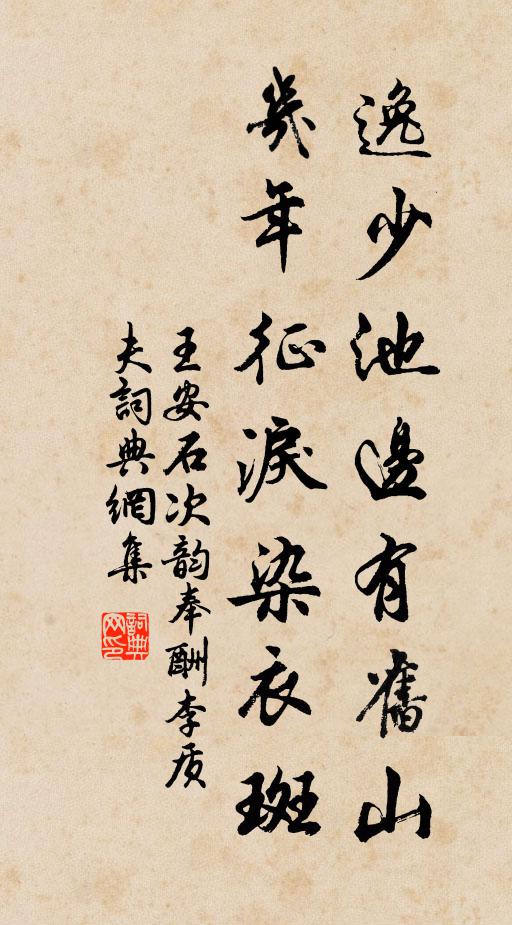 逸少池邊有舊山
幾年征淚染衣斑
王安石次韵奉酬李质
夫詞典網集
詞典
网印